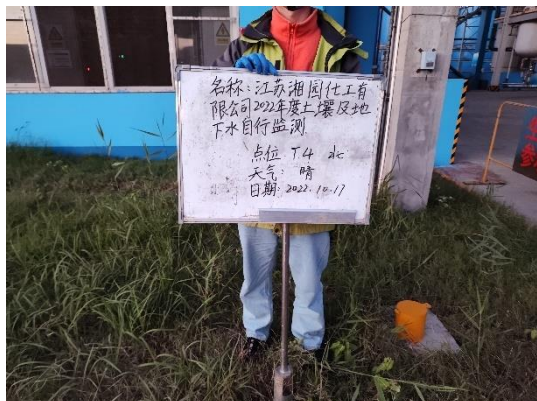 名称：江苏湘园化工有
限公司2022年度土壤及地
下水自行监测
点位 T4 水
天气：晴
日期：2022.10.17